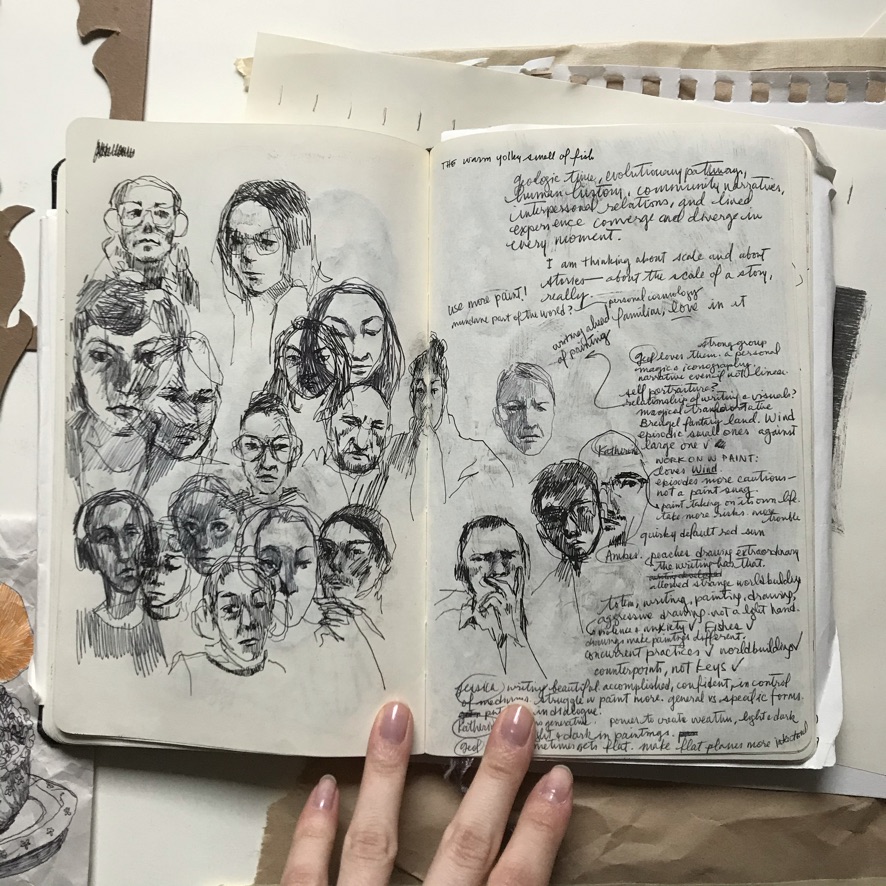 THE warm yolky smell of fish
geologic time, evolutionary pathways,
human history, community narratives,
interpersonal relations, and lived
experience converge and diverge in
every moment.
I am thinking about scale and about
stories — about the scale of a story,
really — personal cosmology
use more paint!
mundane part of the world? familiar, love in it
writing ahead
of painting
strong group
Geof loves them. a personal
magic & iconography.
narrative even if not linear.
self portraiture?
relationship of writing & visuals?
magical transformative
Breugel fantasy land. Wind
episodic small ones against
large one ✓
Katherine
WORK ON W PAINT:
loves Wind.
episodes more cautious—
not a paint snag
paint taking on its own life.
take more risks. more
trouble
quirky default red sun
Amber. peaches drawing extraordinary
the writing has that.
allowed strange worldbuilding
totem, writing, painting, drawing,
aggressive drawing. not a light hand.
violence & anxiety ✓ Fishes ✓
drawings make paintings different.
concurrent practices ✓ worldbuilding ✓
counterpoints, not keys ✓
Jessica) writing beautiful. accomplished, confident, in control
of mediums. struggle w paint more. general vs specific forms.
in dialogue.
Katherine generative. power to create weather, light & dark
light & dark in paintings.
Geof sometimes gets flat. make flat planes more